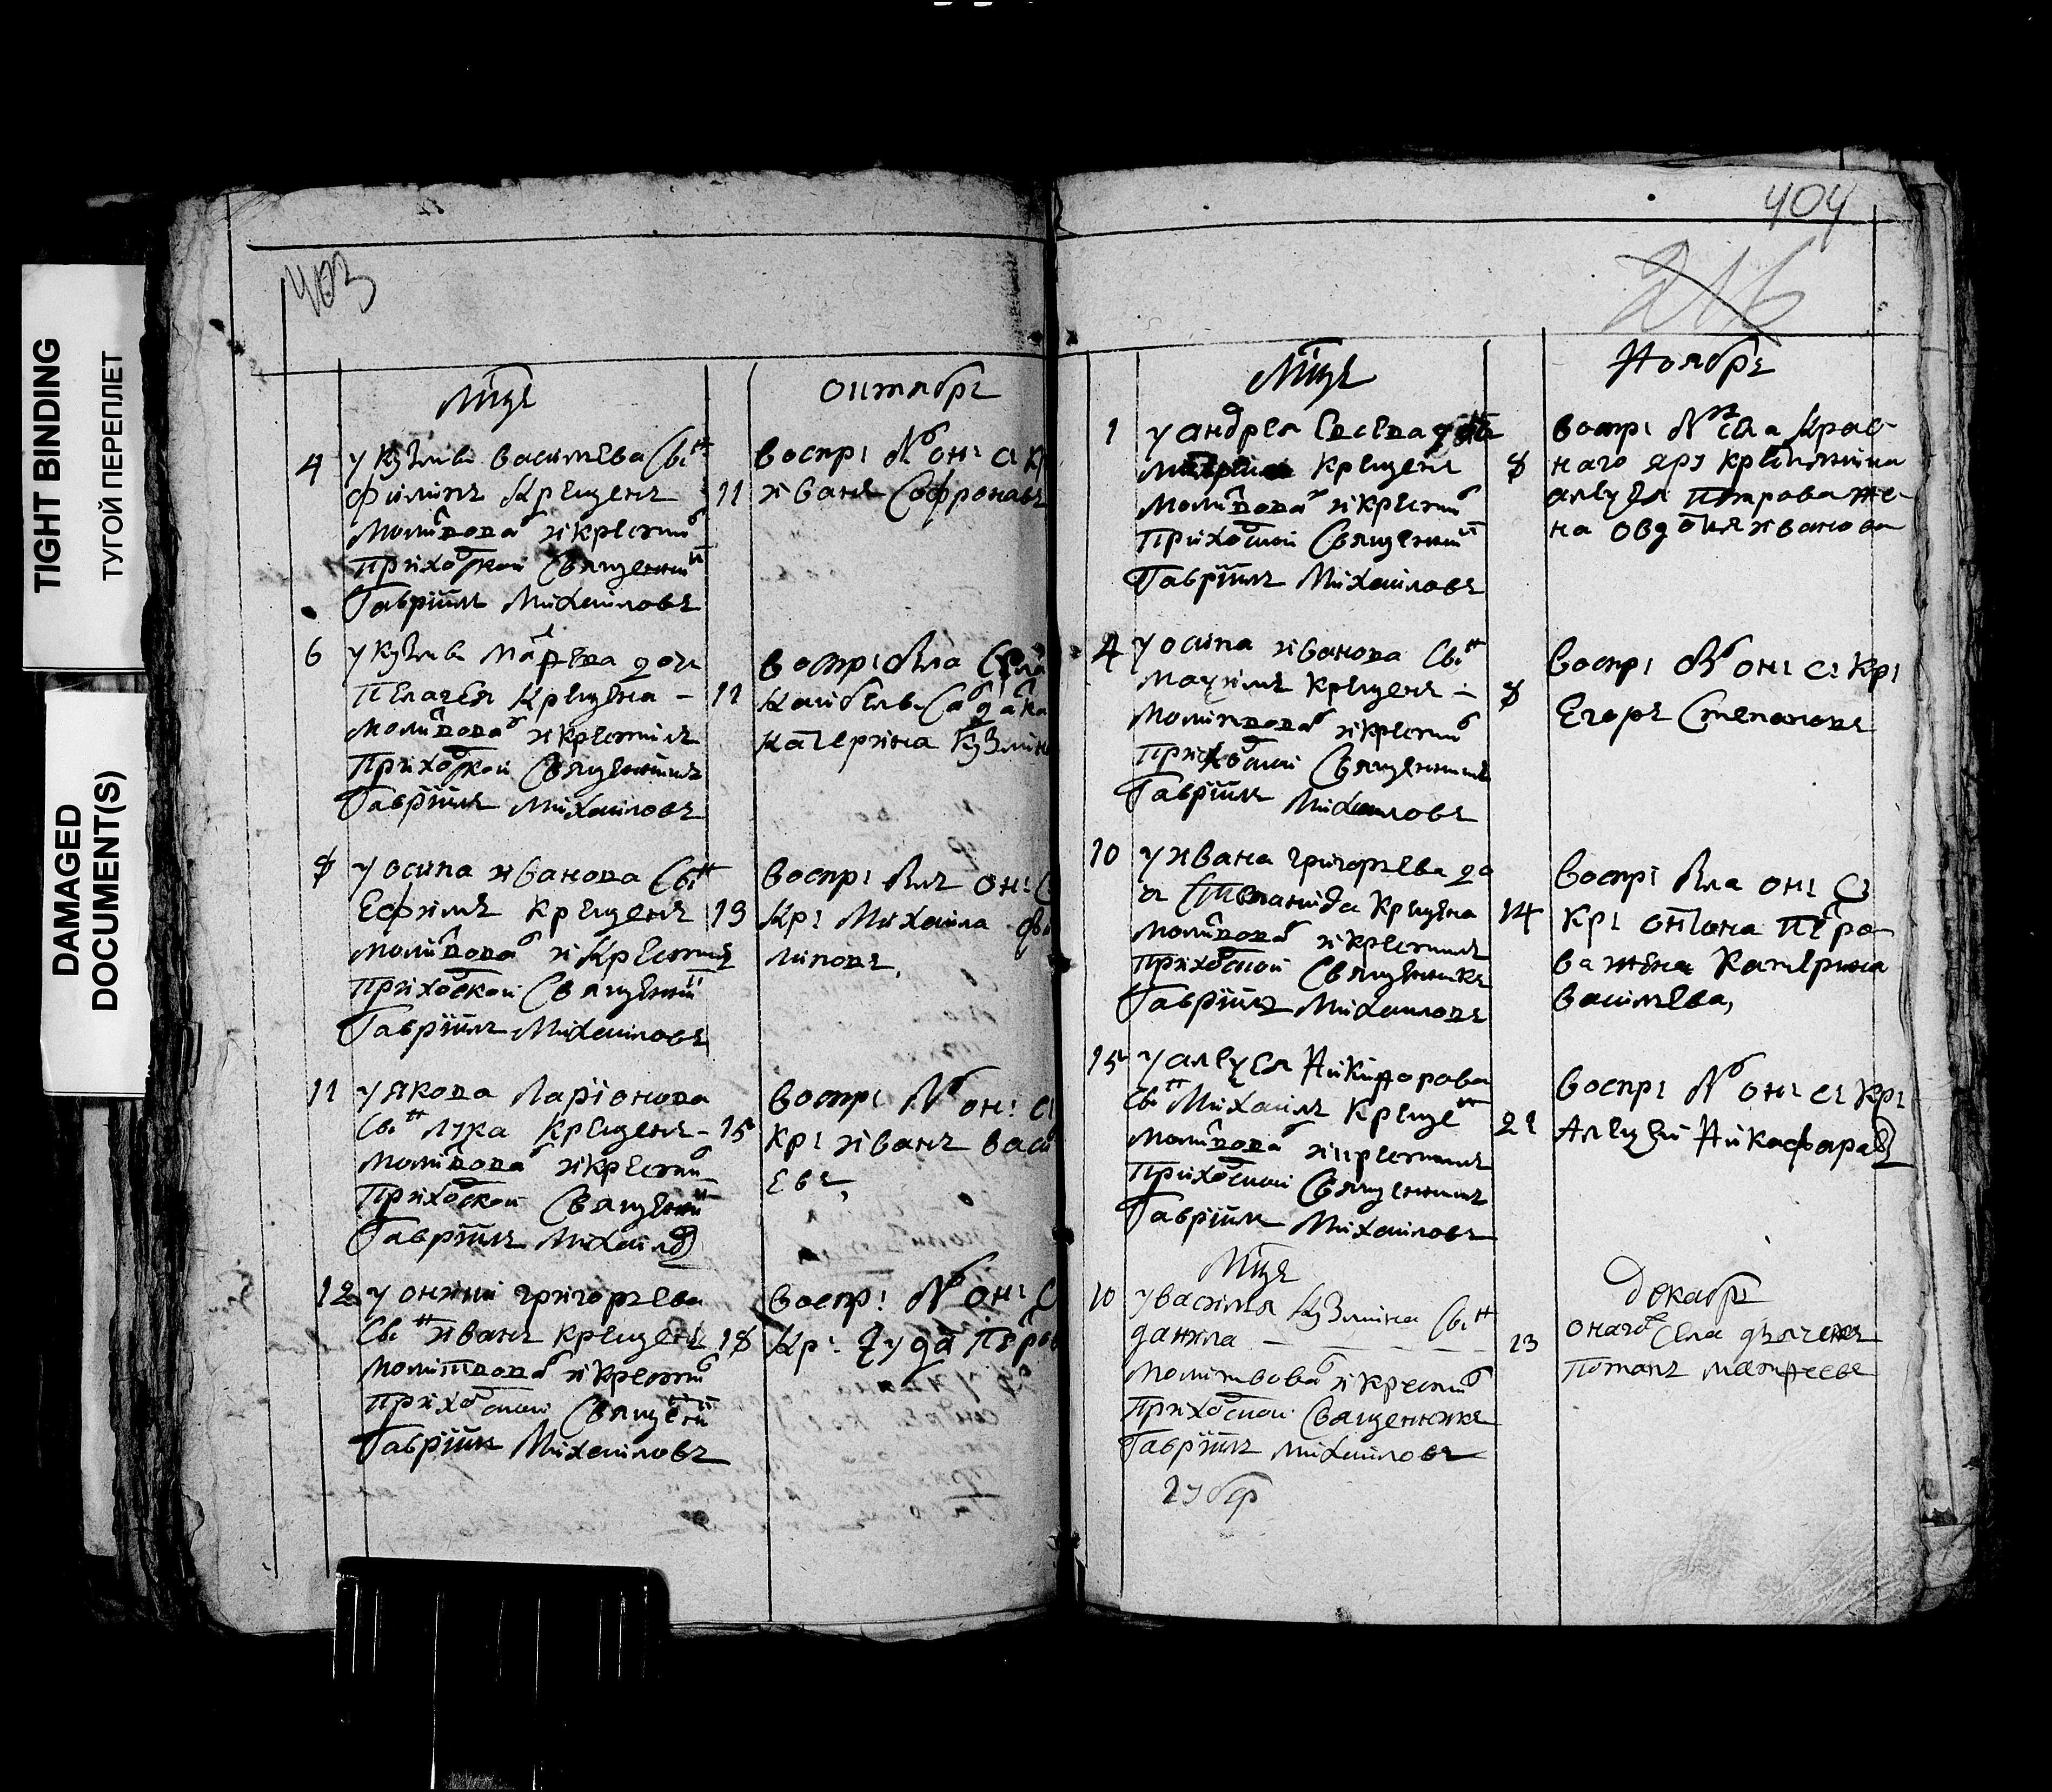 TIGHT BINDING
ТУГОЙ ПЕРЕПЛЕТ
DAMAGED
DOCUMENT(S)
403
мц҃ъ октябрь
4 у Кузмы Васильева сынъ
филипъ крещенъ 11
молитвова и крести
приходской священни
Гавріилъ Михаиловъ
воспрі онс кр
иванъ Софроновъ
6 у Кузмы дочь
Пелагея крещена 11
молитвова и крестилъ
приходской священникъ
Гавріилъ Михаиловъ
воспрі была села
Катерина Кузмин
8 у осипа иванова сынъ
Ефимъ крещенъ 13
молитвова и крестилъ
приходской священни
Гавріилъ Михаиловъ
воспрі былъ он с
кр Михаила фи
липовъ
11 у якова Ларіонова
сынъ лука крещенъ 15
молитвова и крести
приходской священни
Гавріилъ Михаило
воспрі он с
кр иванъ васи
евъ
12 у григорьева
сынъ иванъ крещенъ 18
молитвова и крести
приходской священи
Гавріилъ Михаиловъ
воспрі он с
кр
404
216
мц҃ъ Ноябрь
1 у андрея Евсева
крещена 8
молитвова и крести
приходской священни
Гавріилъ Михаиловъ
воспрі села
наго крестьянина
алеѯея петрова же
на овдотья иванова
4 у осипа иванова сын
маѯимъ крещенъ 8
молитвова и крести
приходской священникъ
Гавріилъ Михаиловъ
воспрі он с кр
Егоръ Степановъ
10 у ивана григорьева до
ч Степанида крещена 14
молитвова и крестилъ
приходской священникъ
Гавріилъ Михаиловъ
воспрі была он с
кр онтона петро
ва жена Катерина
васильева
15 у алеѯея Никифорова
сын Михаилъ креще 21
молитвова и крестилъ
приходской священникъ
Гавріилъ Михаиловъ
воспрі он с кр
Алеѯей
мц҃ъ декабрь
10 у василья Кузмина сын
данила 13
молитвова и крести
приходской священникъ
Гавріилъ Михаиловъ
онаго села дьячекъ
потапъ матфеевъ